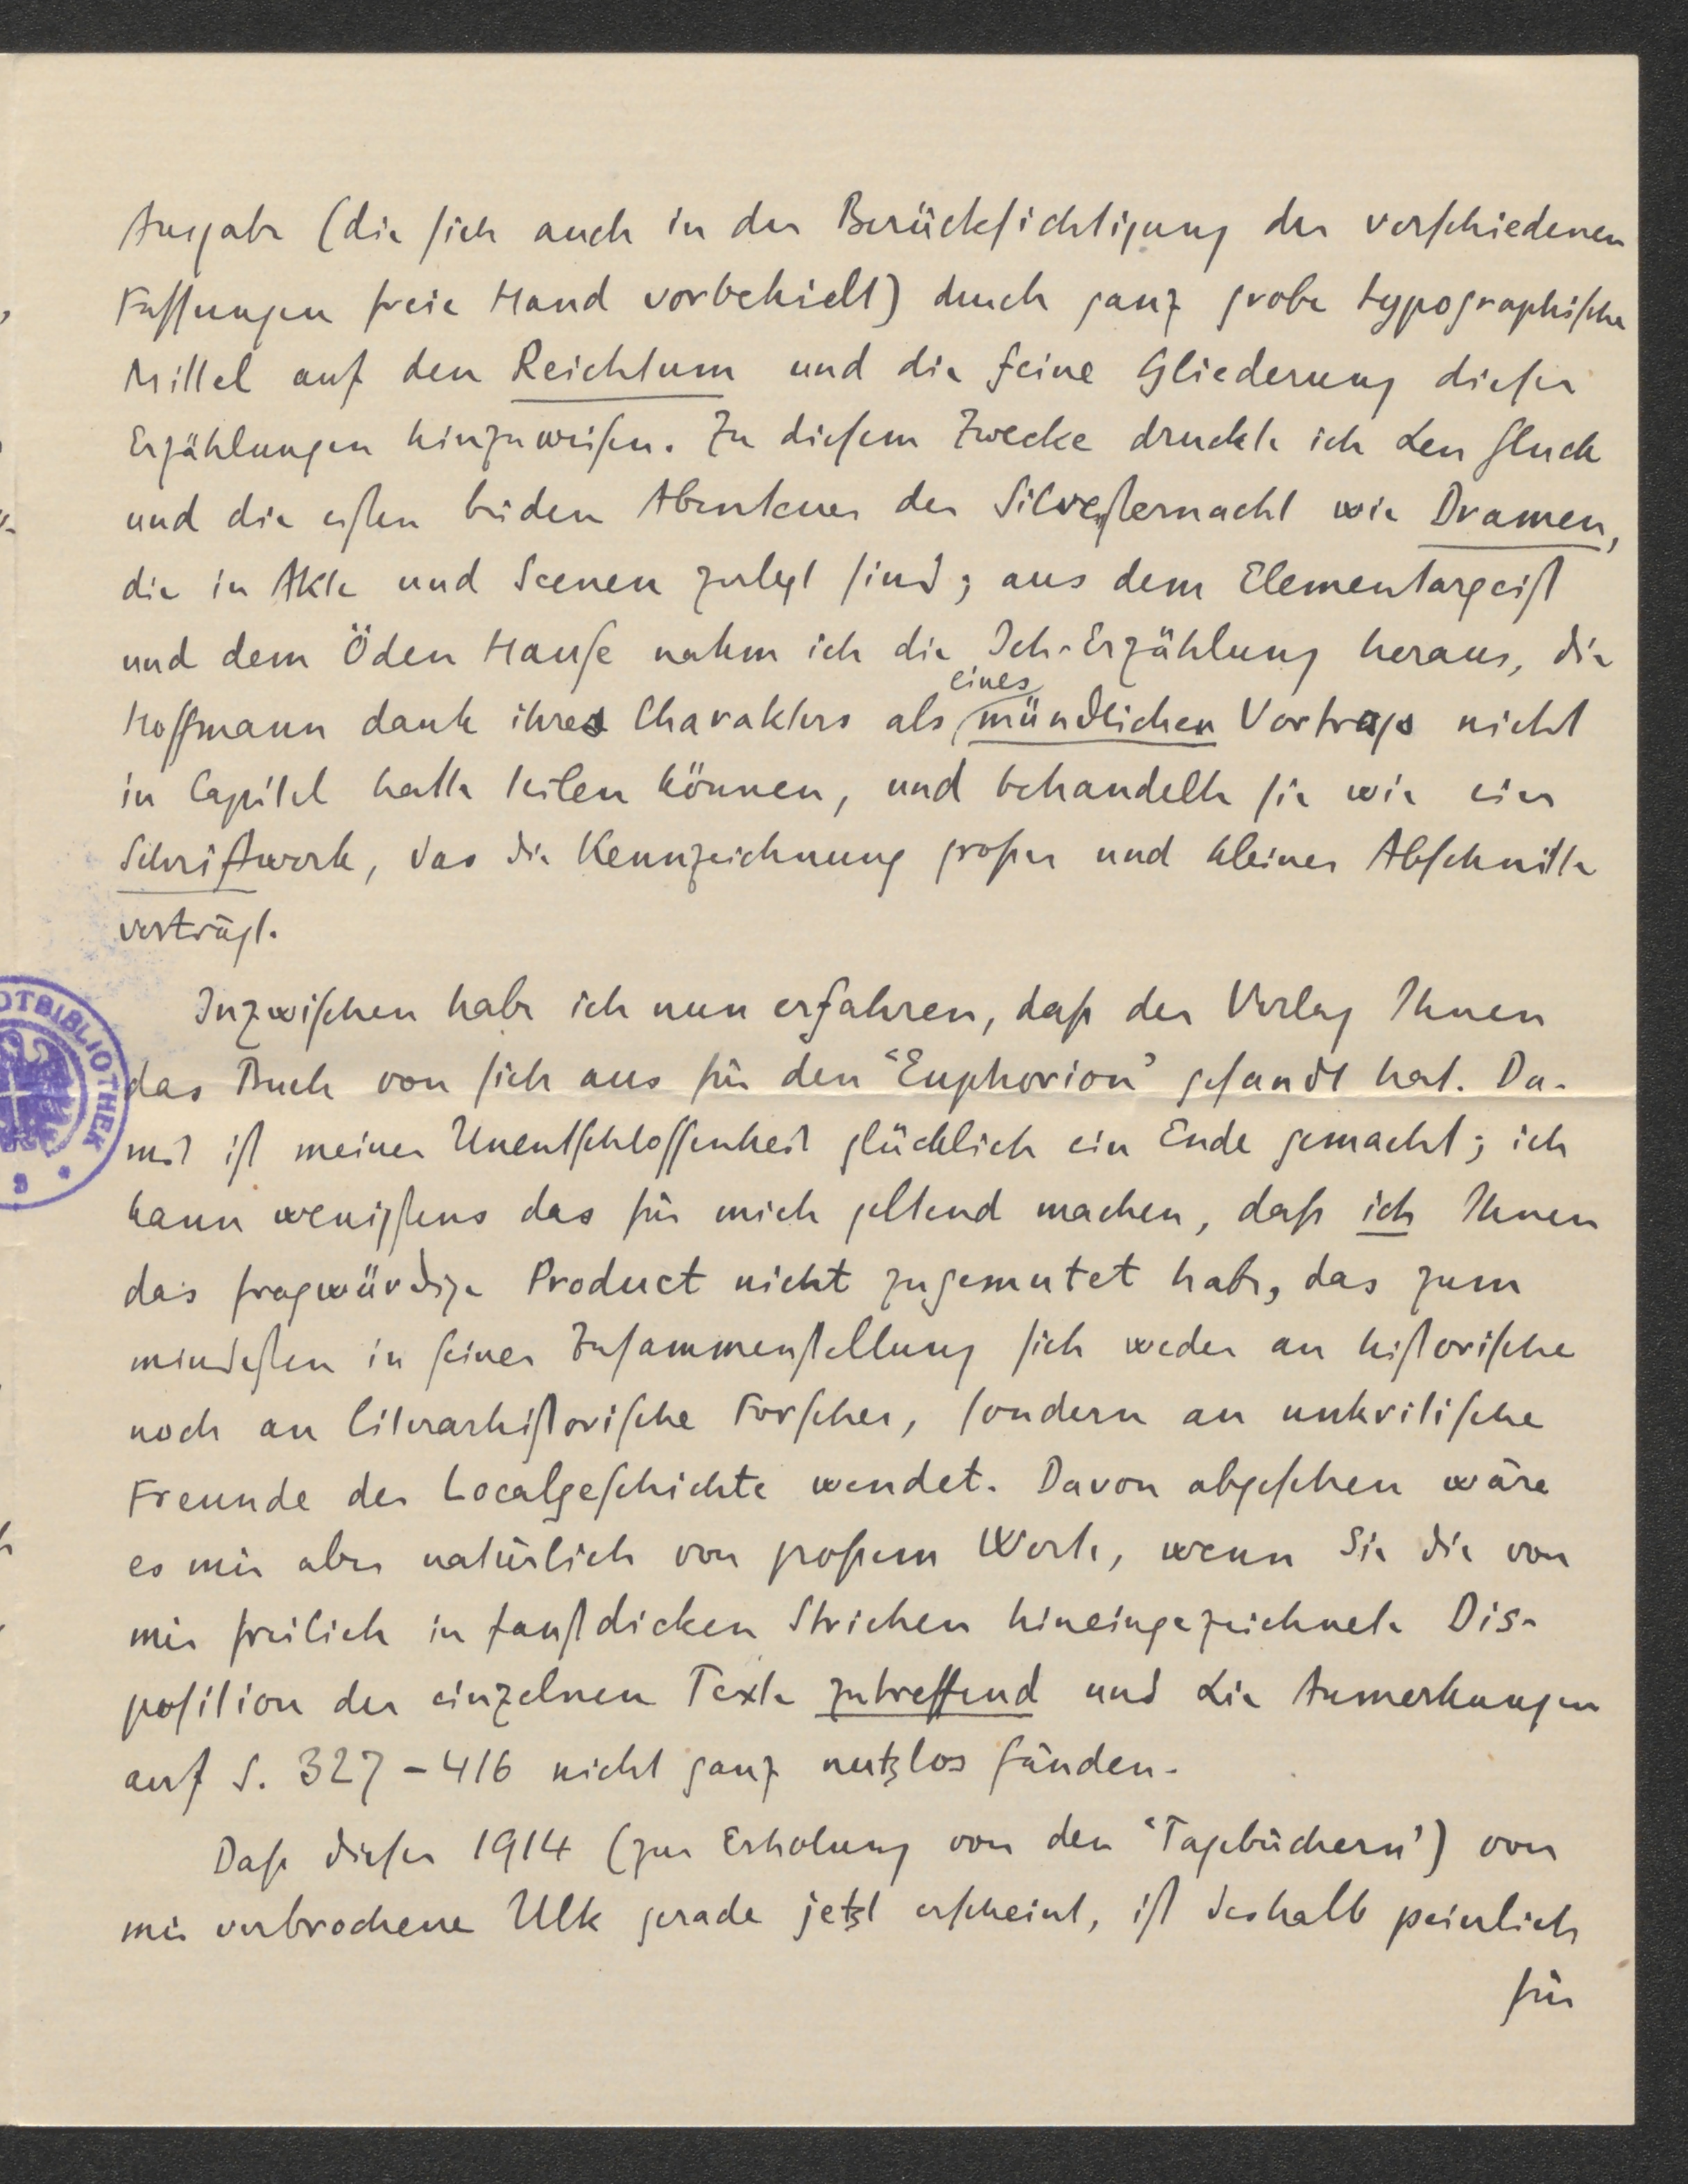 Ausgabe (die sich auch in der Berücksichtigung der verschiedenen
Fassungen freie Hand vorbehielt) durch ganz grobe typographische
Mittel auf den Reichtum und die feine Gliederung dieser
Erzählungen hinzuweisen. Zu diesem Zwecke druckte ich den Gluck
und die ersten beiden Abenteuer der Silvesternacht wie Dramen,
die in Akte und Scenen zerlegt sind; aus dem Elementargeist
und dem Öden Hause nahm ich die Ich-Erzählung heraus, die
eines
Hoffmann dank ihres Charakters als mündlichen Vortrags nicht
in Capitel hatte teilen können, und behandelte sie wie ein
Schriftwerk, das die Kennzeichnung großer und kleiner Abschnitte
verträgt.
Inzwischen habe ich nun erfahren, daß der Verlag Ihnen
das Buch von sich aus für den 'Euphorion' gesandt hat. Da-
mit ist meiner Unentschlossenheit glücklich ein Ende gemacht; ich
kann wenigstens das für mich geltend machen, daß ich Ihnen
das fragwürdige Product nicht zugemutet habe, das zum
mindesten in seiner Zusammenstellung sich weder an historische
noch an literarhistorische Forscher, sondern an unkritische
Freunde der Localgeschichte wendet. Davon abgesehen wäre
es mir aber natürlich von großem Werte, wenn Sie die von
mir freilich in faustdicken Strichen hineingezeichnete Dis-
position der einzelnen Texte zutreffend und die Anmerkungen
auf S. 327-416 nicht ganz nutzlos fänden.
Daß dieser 1914 (zur Erholung von den 'Tagebüchern') von
mir verbrochene Ulk gerade jetzt erscheint, ist deshalb peinlich
für
OTBIBLIOTHEK